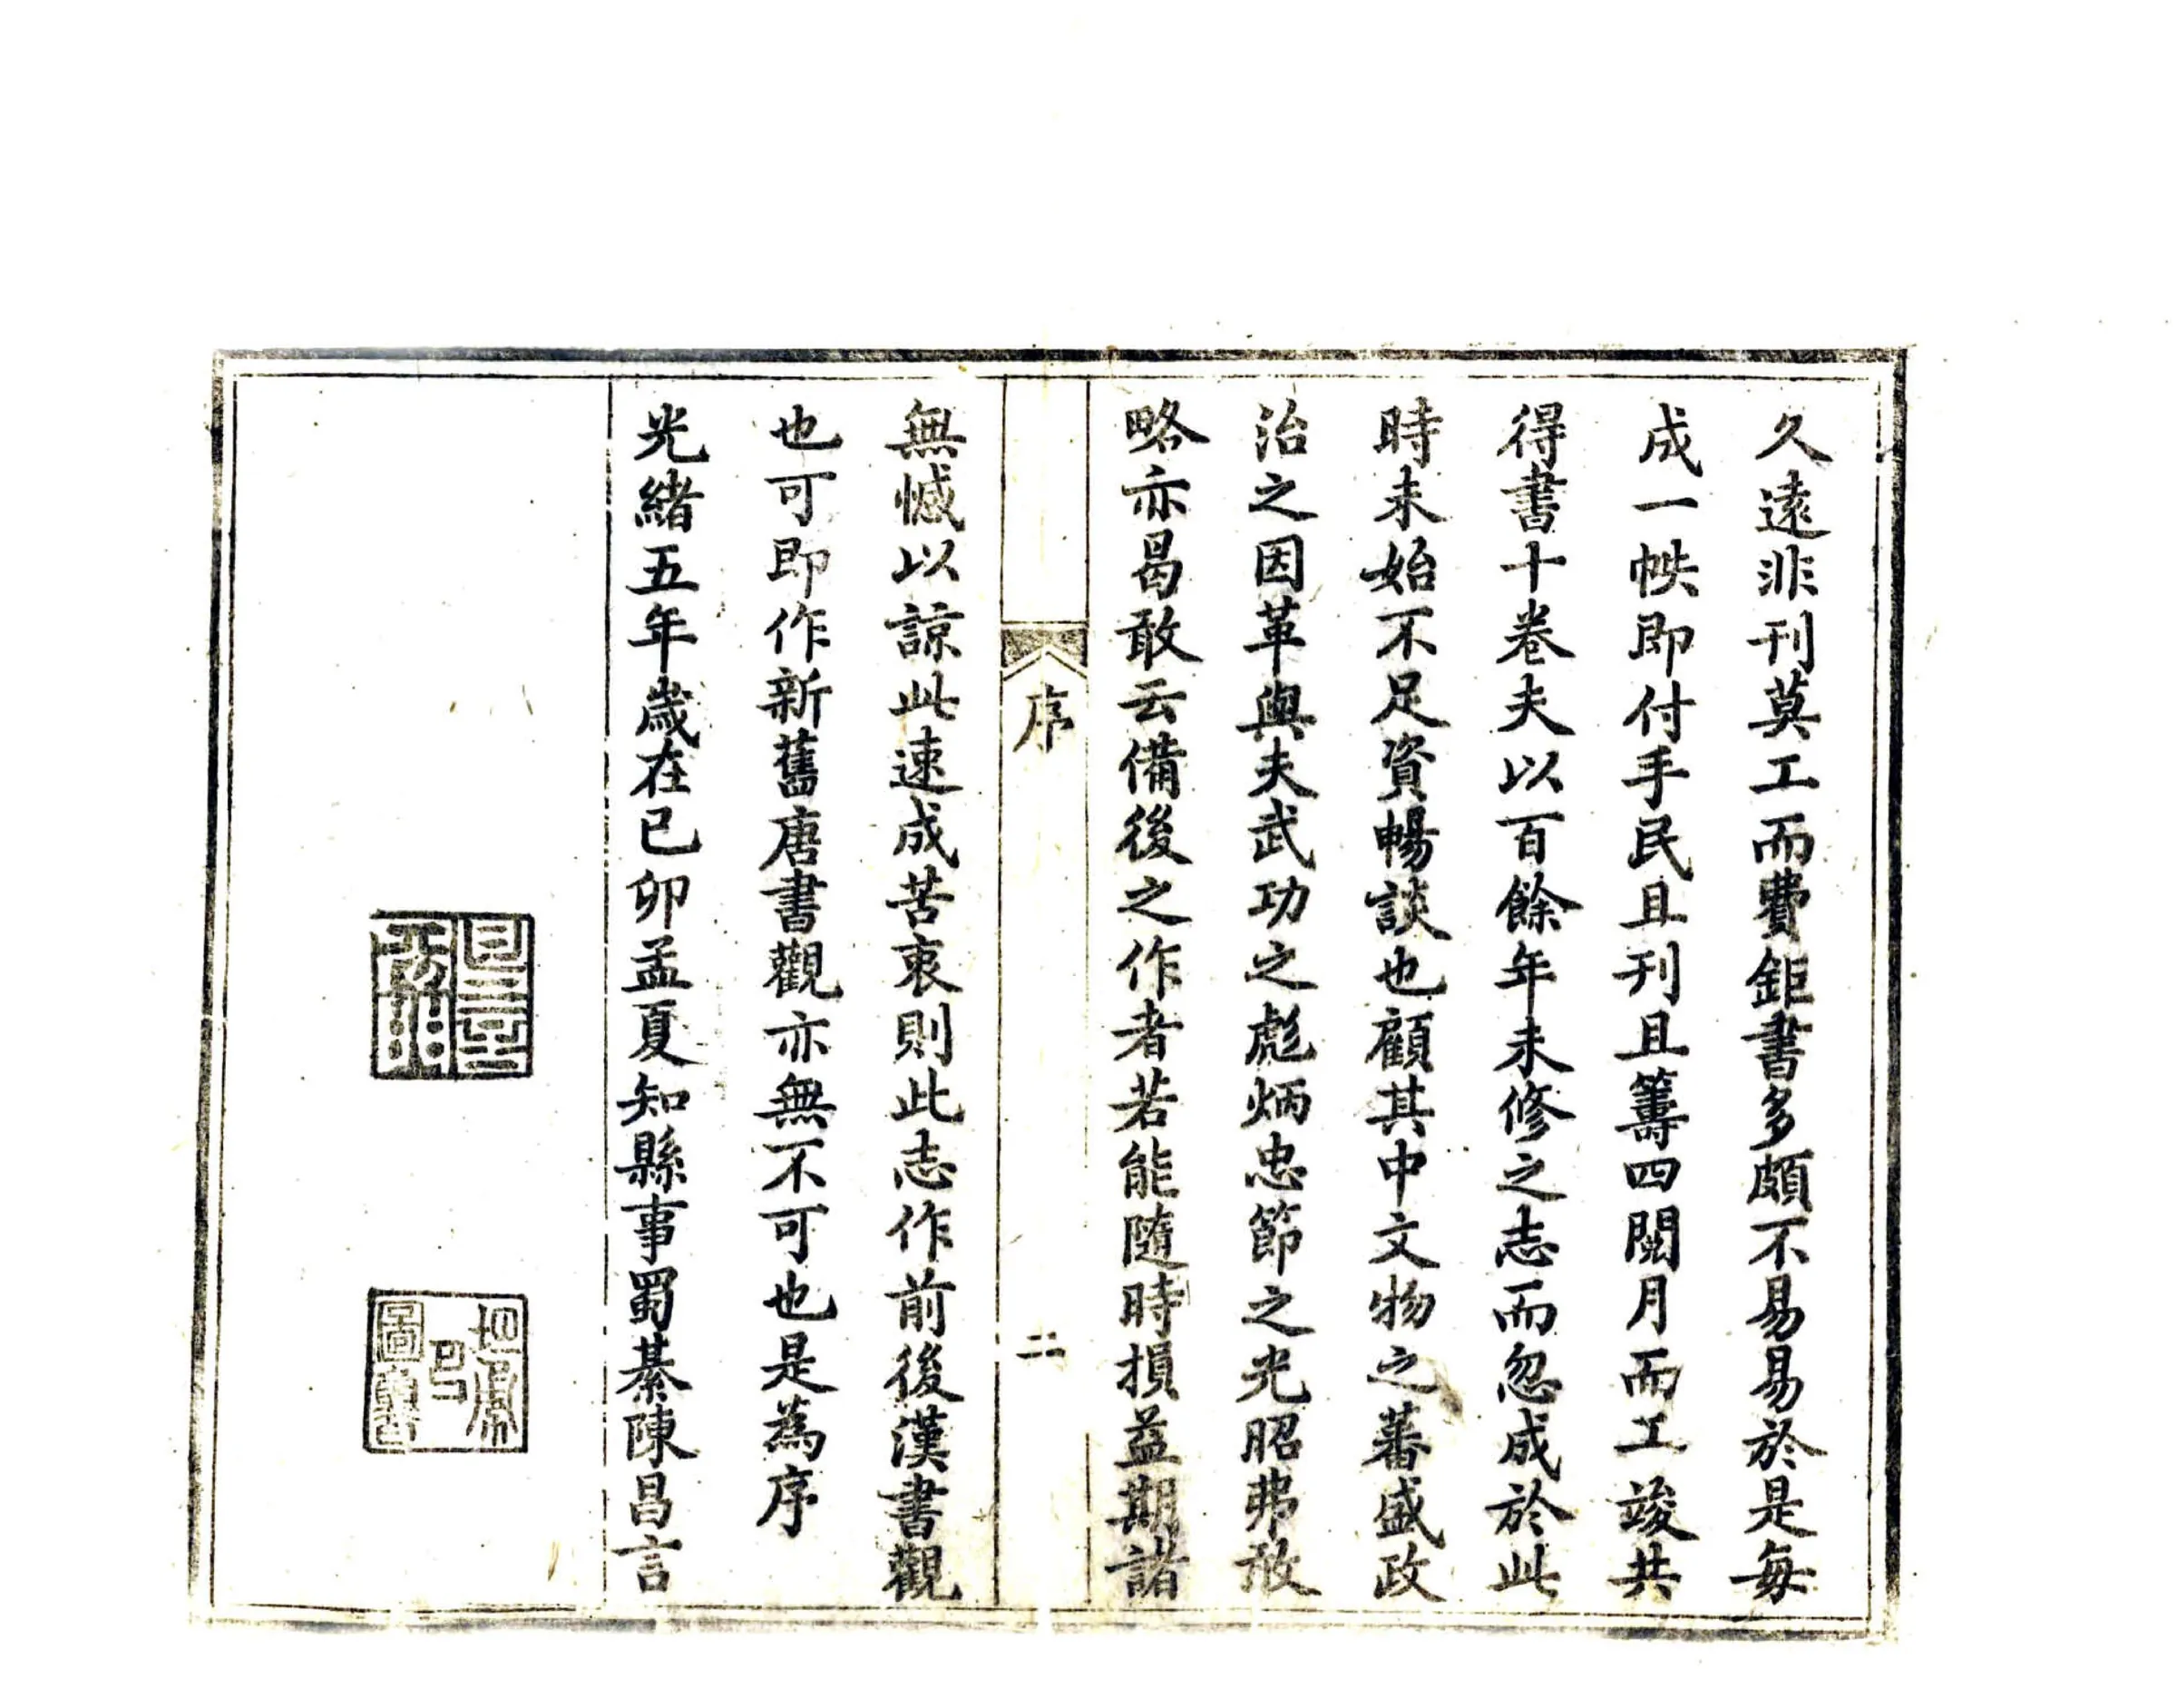 久遠非刊莫工而費鉅書多頗不易易於是每
成一帙即付手民且刊且籌四閱月而工竣共
得書十卷夫以百餘年未修之志而忽成於此
時未始不足資暢談也顧其中文物之蕃盛政
治之因革與夫武功之彪炳忠節之光昭弗敢
略亦曷敢云備後之作者若能隨時損益期諸
序
二
無憾以諒此速成苦衷則此志作前後漢書觀
也可即作新舊唐書觀亦無不可也是為序
光緒五年歲在已卯孟夏知縣事蜀綦陳昌言